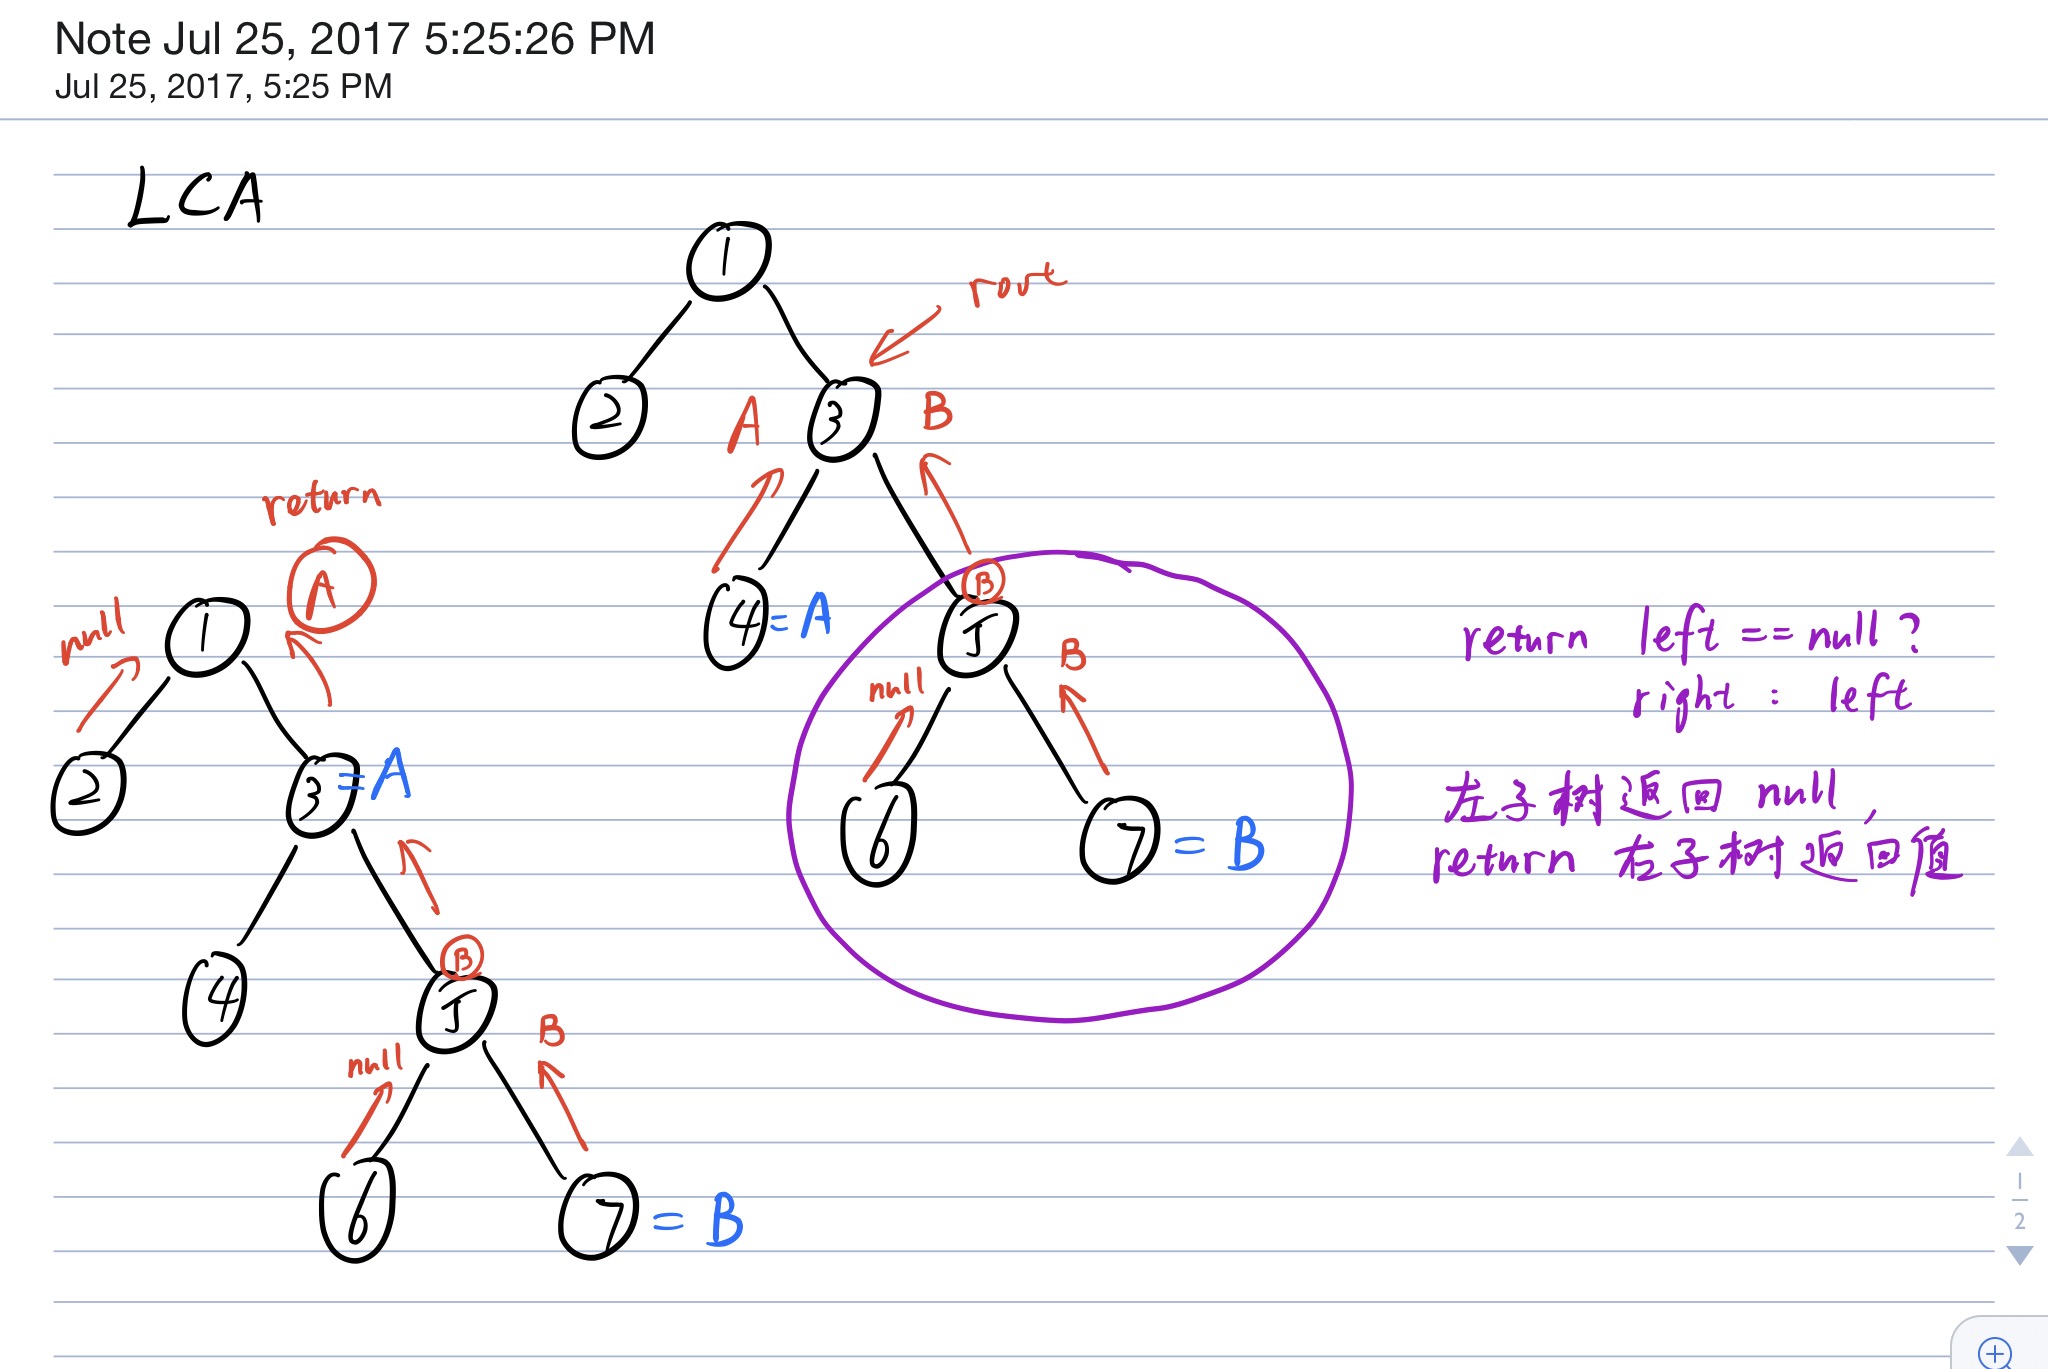 Note Jul 25, 2017 5:25:26 PM
Jul 25, 2017, 5:25 PM
LCA
1
root
2
A
3
B
return
A
null
1
B
4
= A
5
null
B
2
3
= A
6
7
= B
B
4
5
null
B
6
7
= B
return left == null ?
right : left
左子树返回 null,
return 右子树返回值
1
2